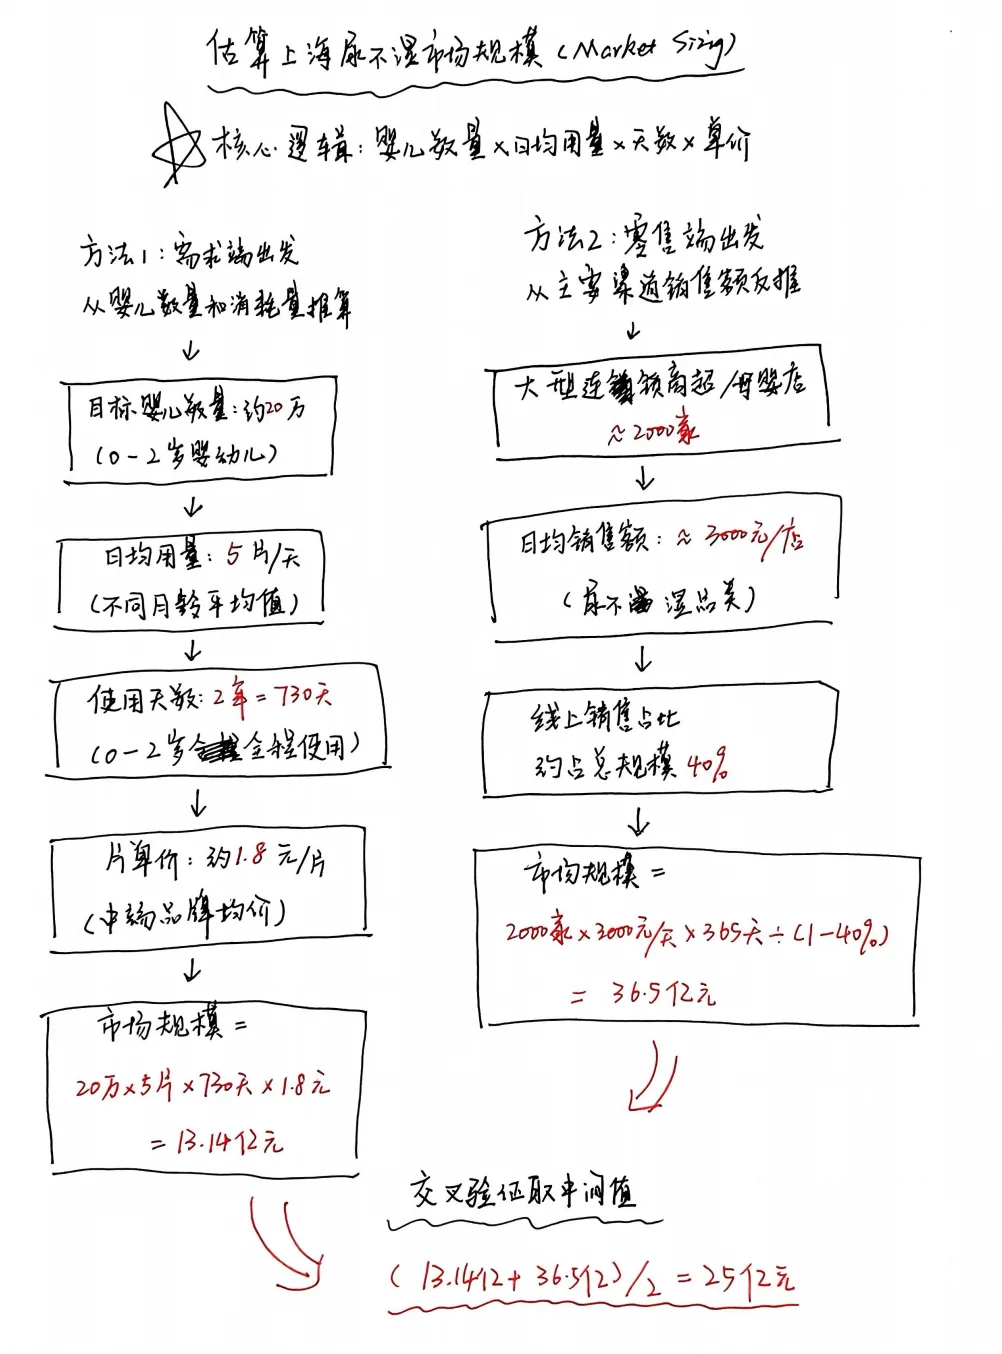 估算上海尿不湿市场规模(Market Sizing)
核心逻辑：婴儿数量×日均用量×天数×单价
方法1：需求端出发
从婴儿数量和消耗量推算
目标婴儿数量：约20万
(0-2岁婴幼儿)
日均用量：5片/天
(不同月龄平均值)
使用天数：2年=730天
(0-2岁全程使用)
片单价：约1.8元/片
(中端品牌均价)
市场规模=
20万×5片×730天×1.8元
=13.14亿元
方法2：零售端出发
从主要渠道销售额反推
大型连锁商超/母婴店
≈2000家
日均销售额：≈3000元/店
(尿不湿品类)
线上销售占比
约占总规模40%
市场规模=
2000家×3000元/天×365天÷(1-40%)
=36.5亿元
交叉验证取中间值
(13.14亿+36.5亿)/2=25亿元